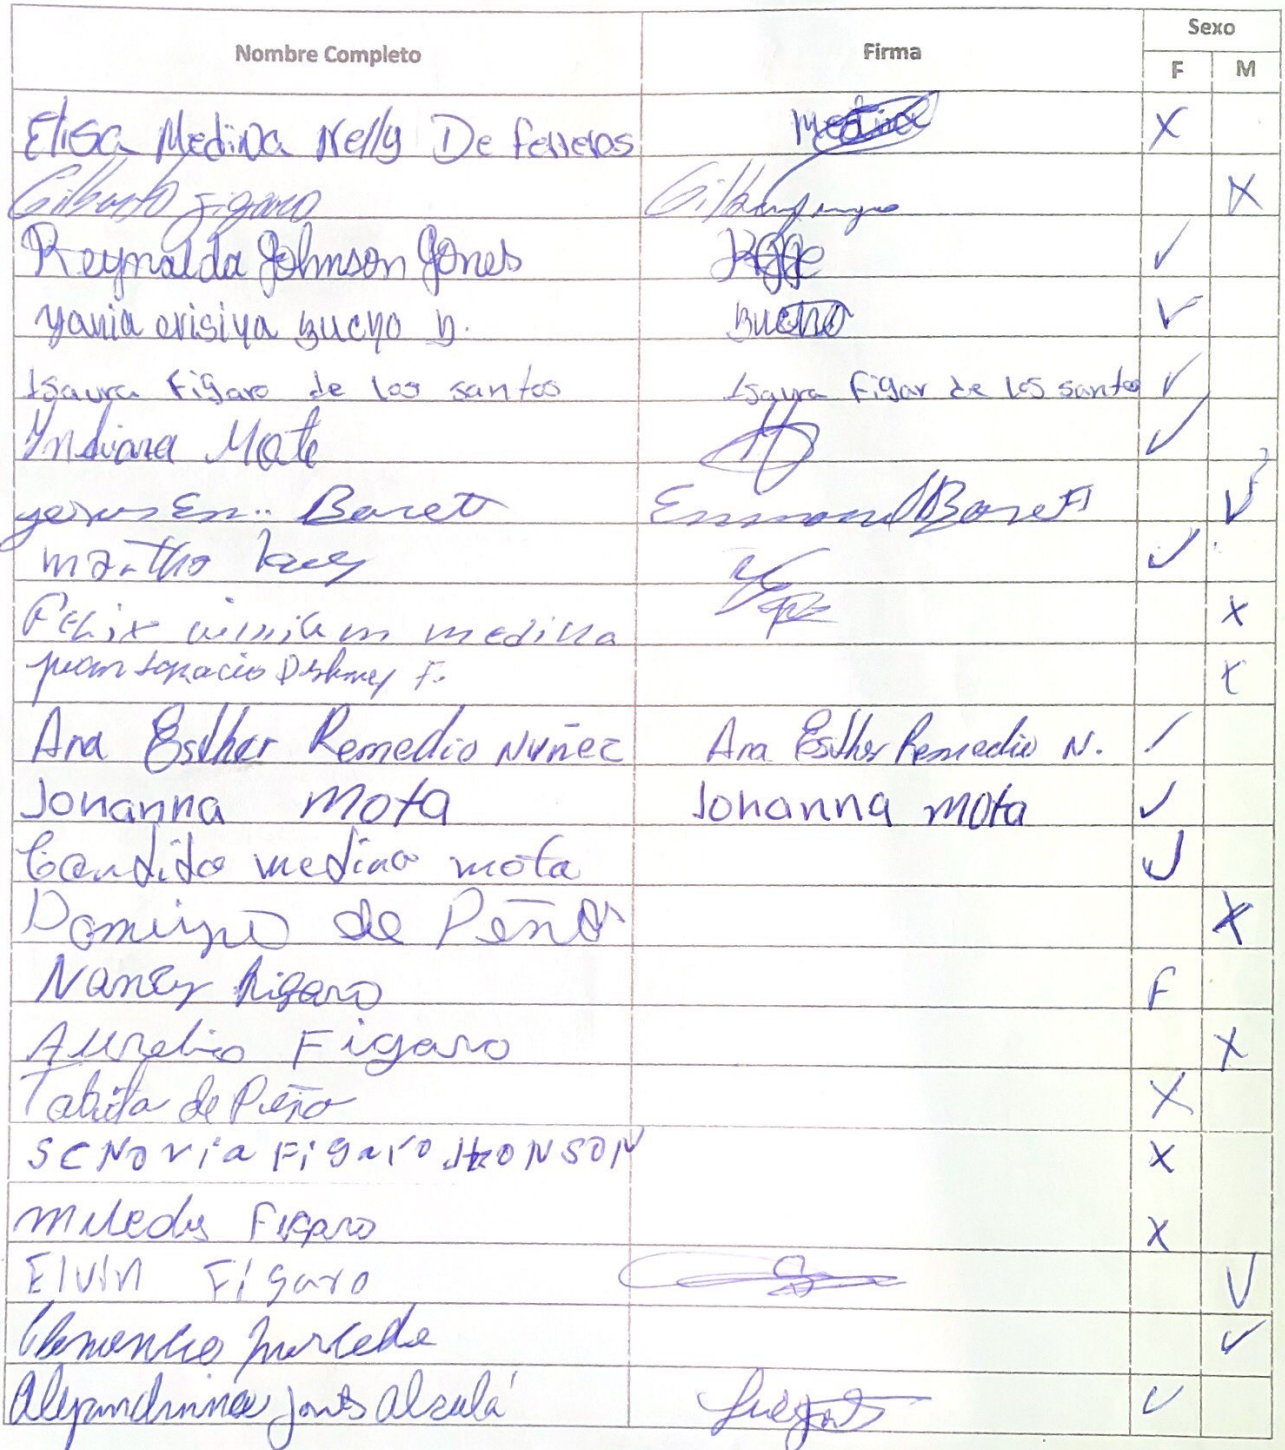 Nombre Completo Firma Sexo
F M
Elisa Medina Nelly De Ferreras Medina X
Gilberto Figaro X
Reynalda Johnson Jones ✓
yania crisiya Bueno D. Bueno ✓
Isaura Figaro de los santos Isaura Figar de los santos ✓
Yndiana Mate ✓
Em.. Barett Emmanuel Barett ✓
martha ✓
Felix william medina X
juan Ignacio F. X
Ana Esther Remedio Nuñez Ana Esther Remedio N. ✓
Johanna Mota Johanna Mota ✓
Candida medina mota ✓
Domingo de Peña X
Nancy Figaro F
Aurelio Figaro X
Tabita de Peña X
SENOVIA FIGARO JHONSON X
Miledys Figaro X
Elvin Figaro ✓
Clemencio mercede ✓
Alejandrina Jones Alcalá ✓